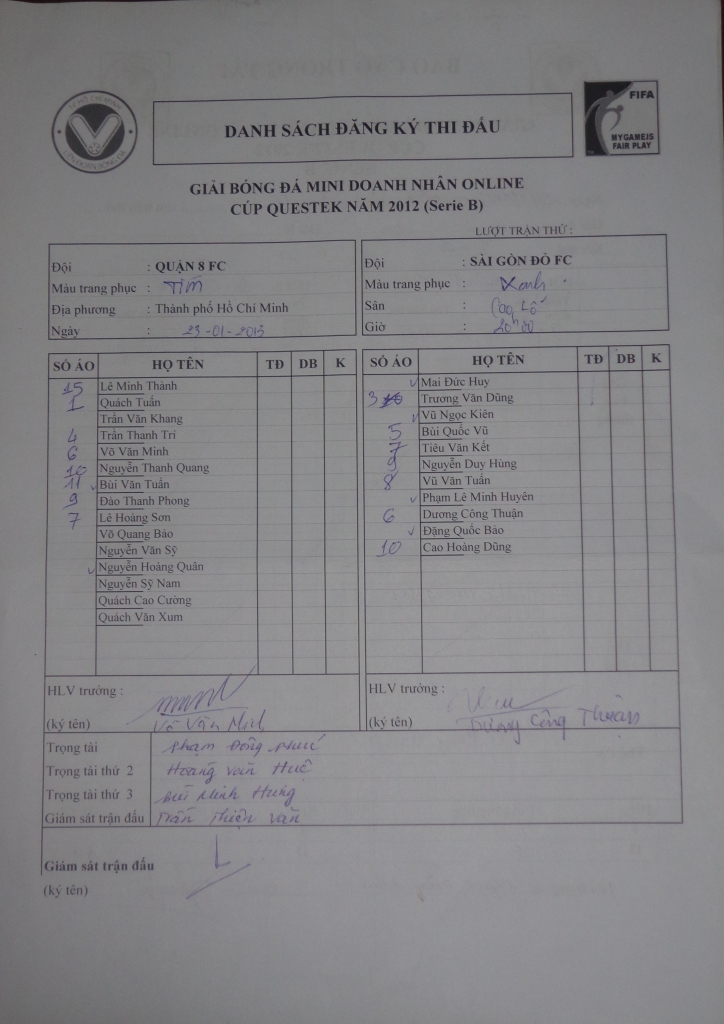 LIÊN ĐOÀN BÓNG ĐÁ
DANH SÁCH ĐĂNG KÝ THI ĐẤU
FIFA
MY GAME IS
FAIR PLAY
GIẢI BÓNG ĐÁ MINI DOANH NHÂN ONLINE
CÚP QUESTEK NĂM 2012 (Serie B)
LƯỢT TRẬN THỨ :
Đội : QUẬN 8 FC
Màu trang phục : TÍM
Địa phương : Thành phố Hồ Chí Minh
Ngày : 23-01-2013
Đội : SÀI GÒN ĐỎ FC
Màu trang phục : Xanh
Sân : Cao Lỗ
Giờ : 20h00
SỐ ÁO HỌ TÊN TĐ DB K
15 Lê Minh Thành
1 Quách Tuấn
Trần Văn Khang
4 Trần Thanh Trí
6 Võ Văn Minh
10 Nguyễn Thanh Quang
11 Bùi Văn Tuấn
9 Đào Thanh Phong
7 Lê Hoàng Sơn
Võ Quang Bảo
Nguyễn Văn Sỹ
Nguyễn Hoàng Quân
Nguyễn Sỹ Nam
Quách Cao Cường
Quách Văn Xum
SỐ ÁO HỌ TÊN TĐ DB K
Mai Đức Huy
3 Trương Văn Dũng
Vũ Ngọc Kiên
5 Bùi Quốc Vũ
7 Tiêu Văn Kết
9 Nguyễn Duy Hùng
8 Vũ Văn Tuấn
Phạm Lê Minh Huyên
6 Dương Công Thuận
Đặng Quốc Bảo
10 Cao Hoàng Dũng
HLV trưởng :
(ký tên) Võ Văn Minh
HLV trưởng :
(ký tên) Dương Công Thuận
Trọng tài Phạm Đông
Trọng tài thứ 2 Hoàng Văn Huệ
Trọng tài thứ 3 Bùi Minh Hưng
Giám sát trận đấu Trần Thiện Văn
Giám sát trận đấu
(ký tên)